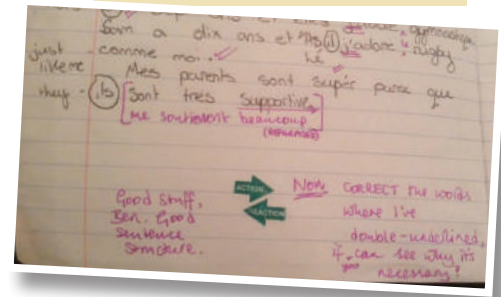 Sam a dix ans et il j'adore rugby
just like me comme moi. he
Mes parents sont supér parce que
they - ils sont très supportive.
me soutiennent beaucoup
(REFLEXES)
ACTION
REACTION
Good stuff,
Ben. Good
sentence
structure.
Now CORRECT the words
where I've
double-underlined,
if you can see why it's
necessary!